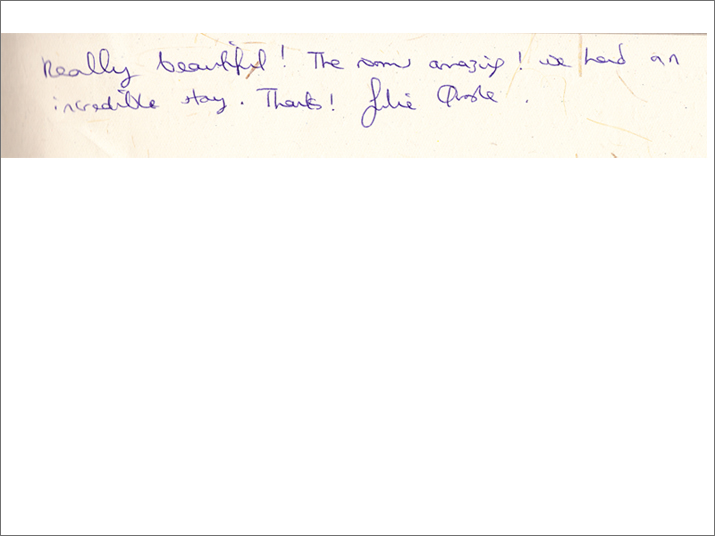 Really beautiful! The rooms amazing! we had an
incredible stay. Thanks! Julie